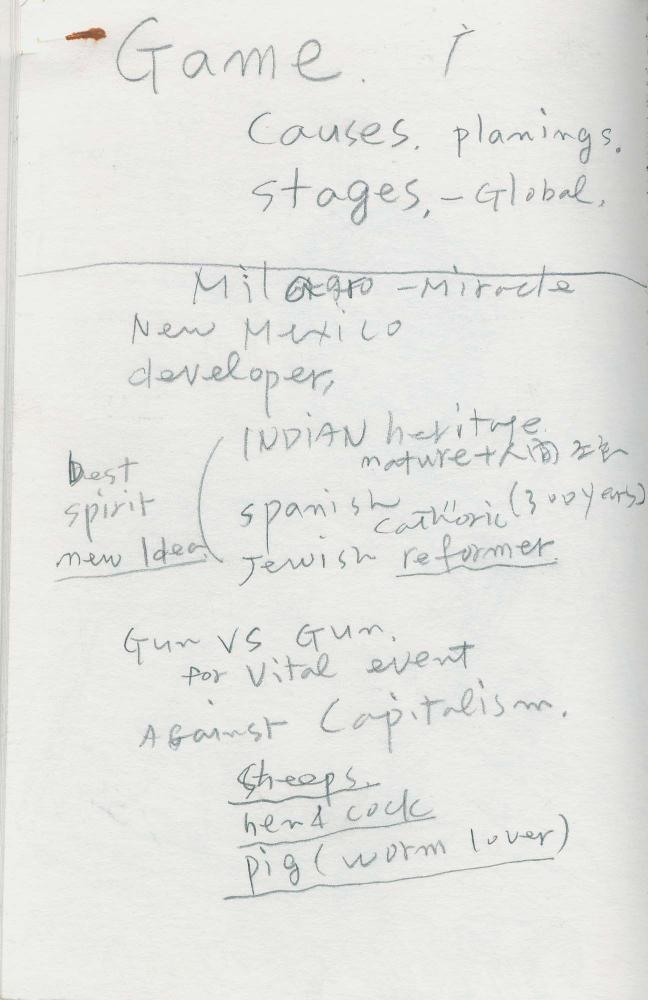 Game.
Causes. planings.
stages, - Global.
Milagro - Miracle
New Mexico
developer,
INDIAN heritage
nature + 人間
best
spirit
new Idea
spanish cathoric (300 years)
Jewish reformer
Gun VS Gun.
for Vital event
Against Capitalism.
Sheeps.
hen & cock
pig (worm lover)